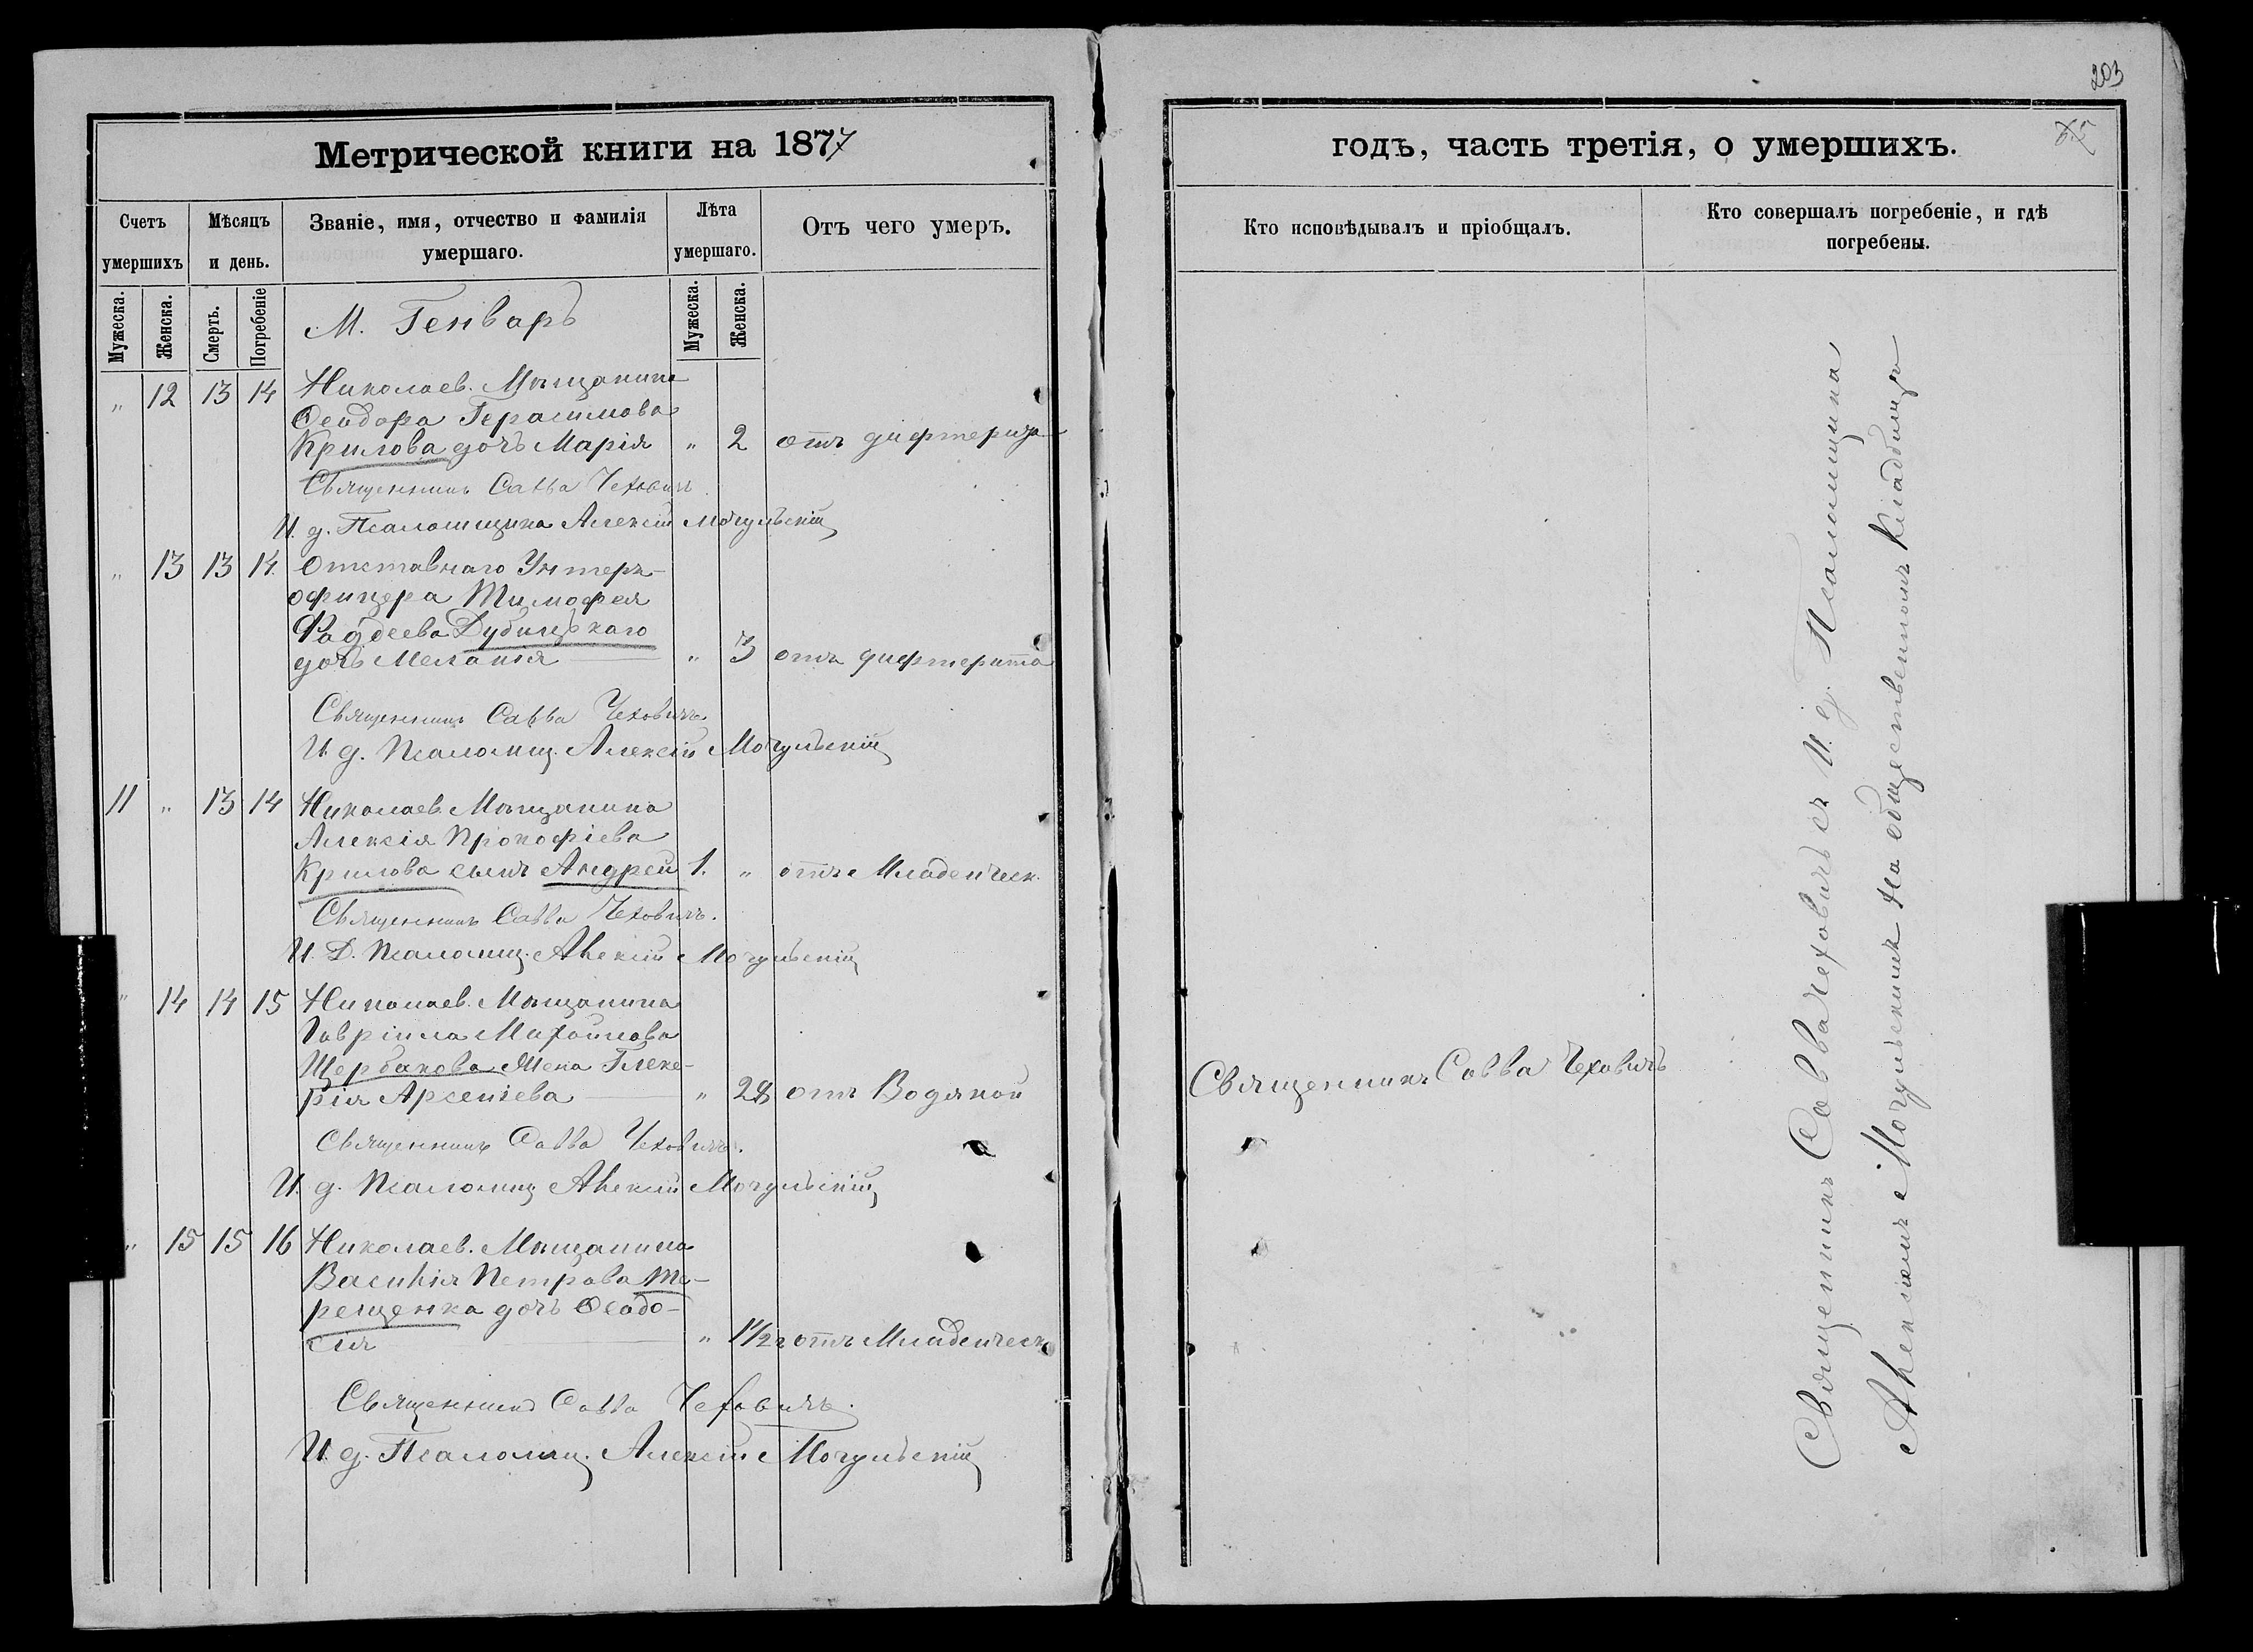 203
Метрической книги на 1877
годъ, часть третія, о умершихъ.
Счетъ умершихъ
Мѣсяцъ и день.
Званіе, имя, отчество и фамилія умершаго.
Лѣта умершаго.
Отъ чего умеръ.
Кто исповѣдывалъ и пріобщалъ.
Кто совершалъ погребеніе, и гдѣ погребены.
Мужеска.
Женска.
Смерть.
Погребеніе
Мужеска.
Женска.
М. Генварь
„ 12 13 14 Николаев. Мѣщанина
Феодора Герасимова
Крилова дочь Марія „ 2 отъ дифтерита
Священникъ Савва Чеховичъ
И. д. Псаломщика Алексій Могульскій
„ 13 13 14 Отставнаго Унтеръ-
офицера Тимофея
Фаддеева Дубицкаго
дочь Меланія „ 3 отъ дифтерита
Священникъ Савва Чеховичъ
И. д. Псаломщ. Алексій Могульскій
11 „ 13 14 Николаев. Мѣщанина
Алексія Прокофіева
Крилова сынъ Андрей 1. „ отъ Младенческ.
Священникъ Савва Чеховичъ.
И. Д. Псаломщ. Алексій Могульскій
„ 14 14 15 Николаев. Мѣщанина
Гавріила Михайлова
Щербакова Жена Глеке-
рія Арсеніева „ 28 отъ Водяной
Священникъ Савва Чеховичъ
Священникъ Савва Чеховичъ.
И. д. Псаломщ Алексій Могульскій
„ 15 15 16 Николаев. Мѣщанина
Василія Петрова Те-
рещенка дочь Феодо-
сія „ 1 1/2 отъ Младенческ
Священникъ Савва Чеховичъ.
И. д. Псаломщ. Алексій Могульскій
Священникъ Савва Чеховичъ съ И. д. Псаломщика
Алексіемъ Могульскимъ на общественномъ Кладбищѣ